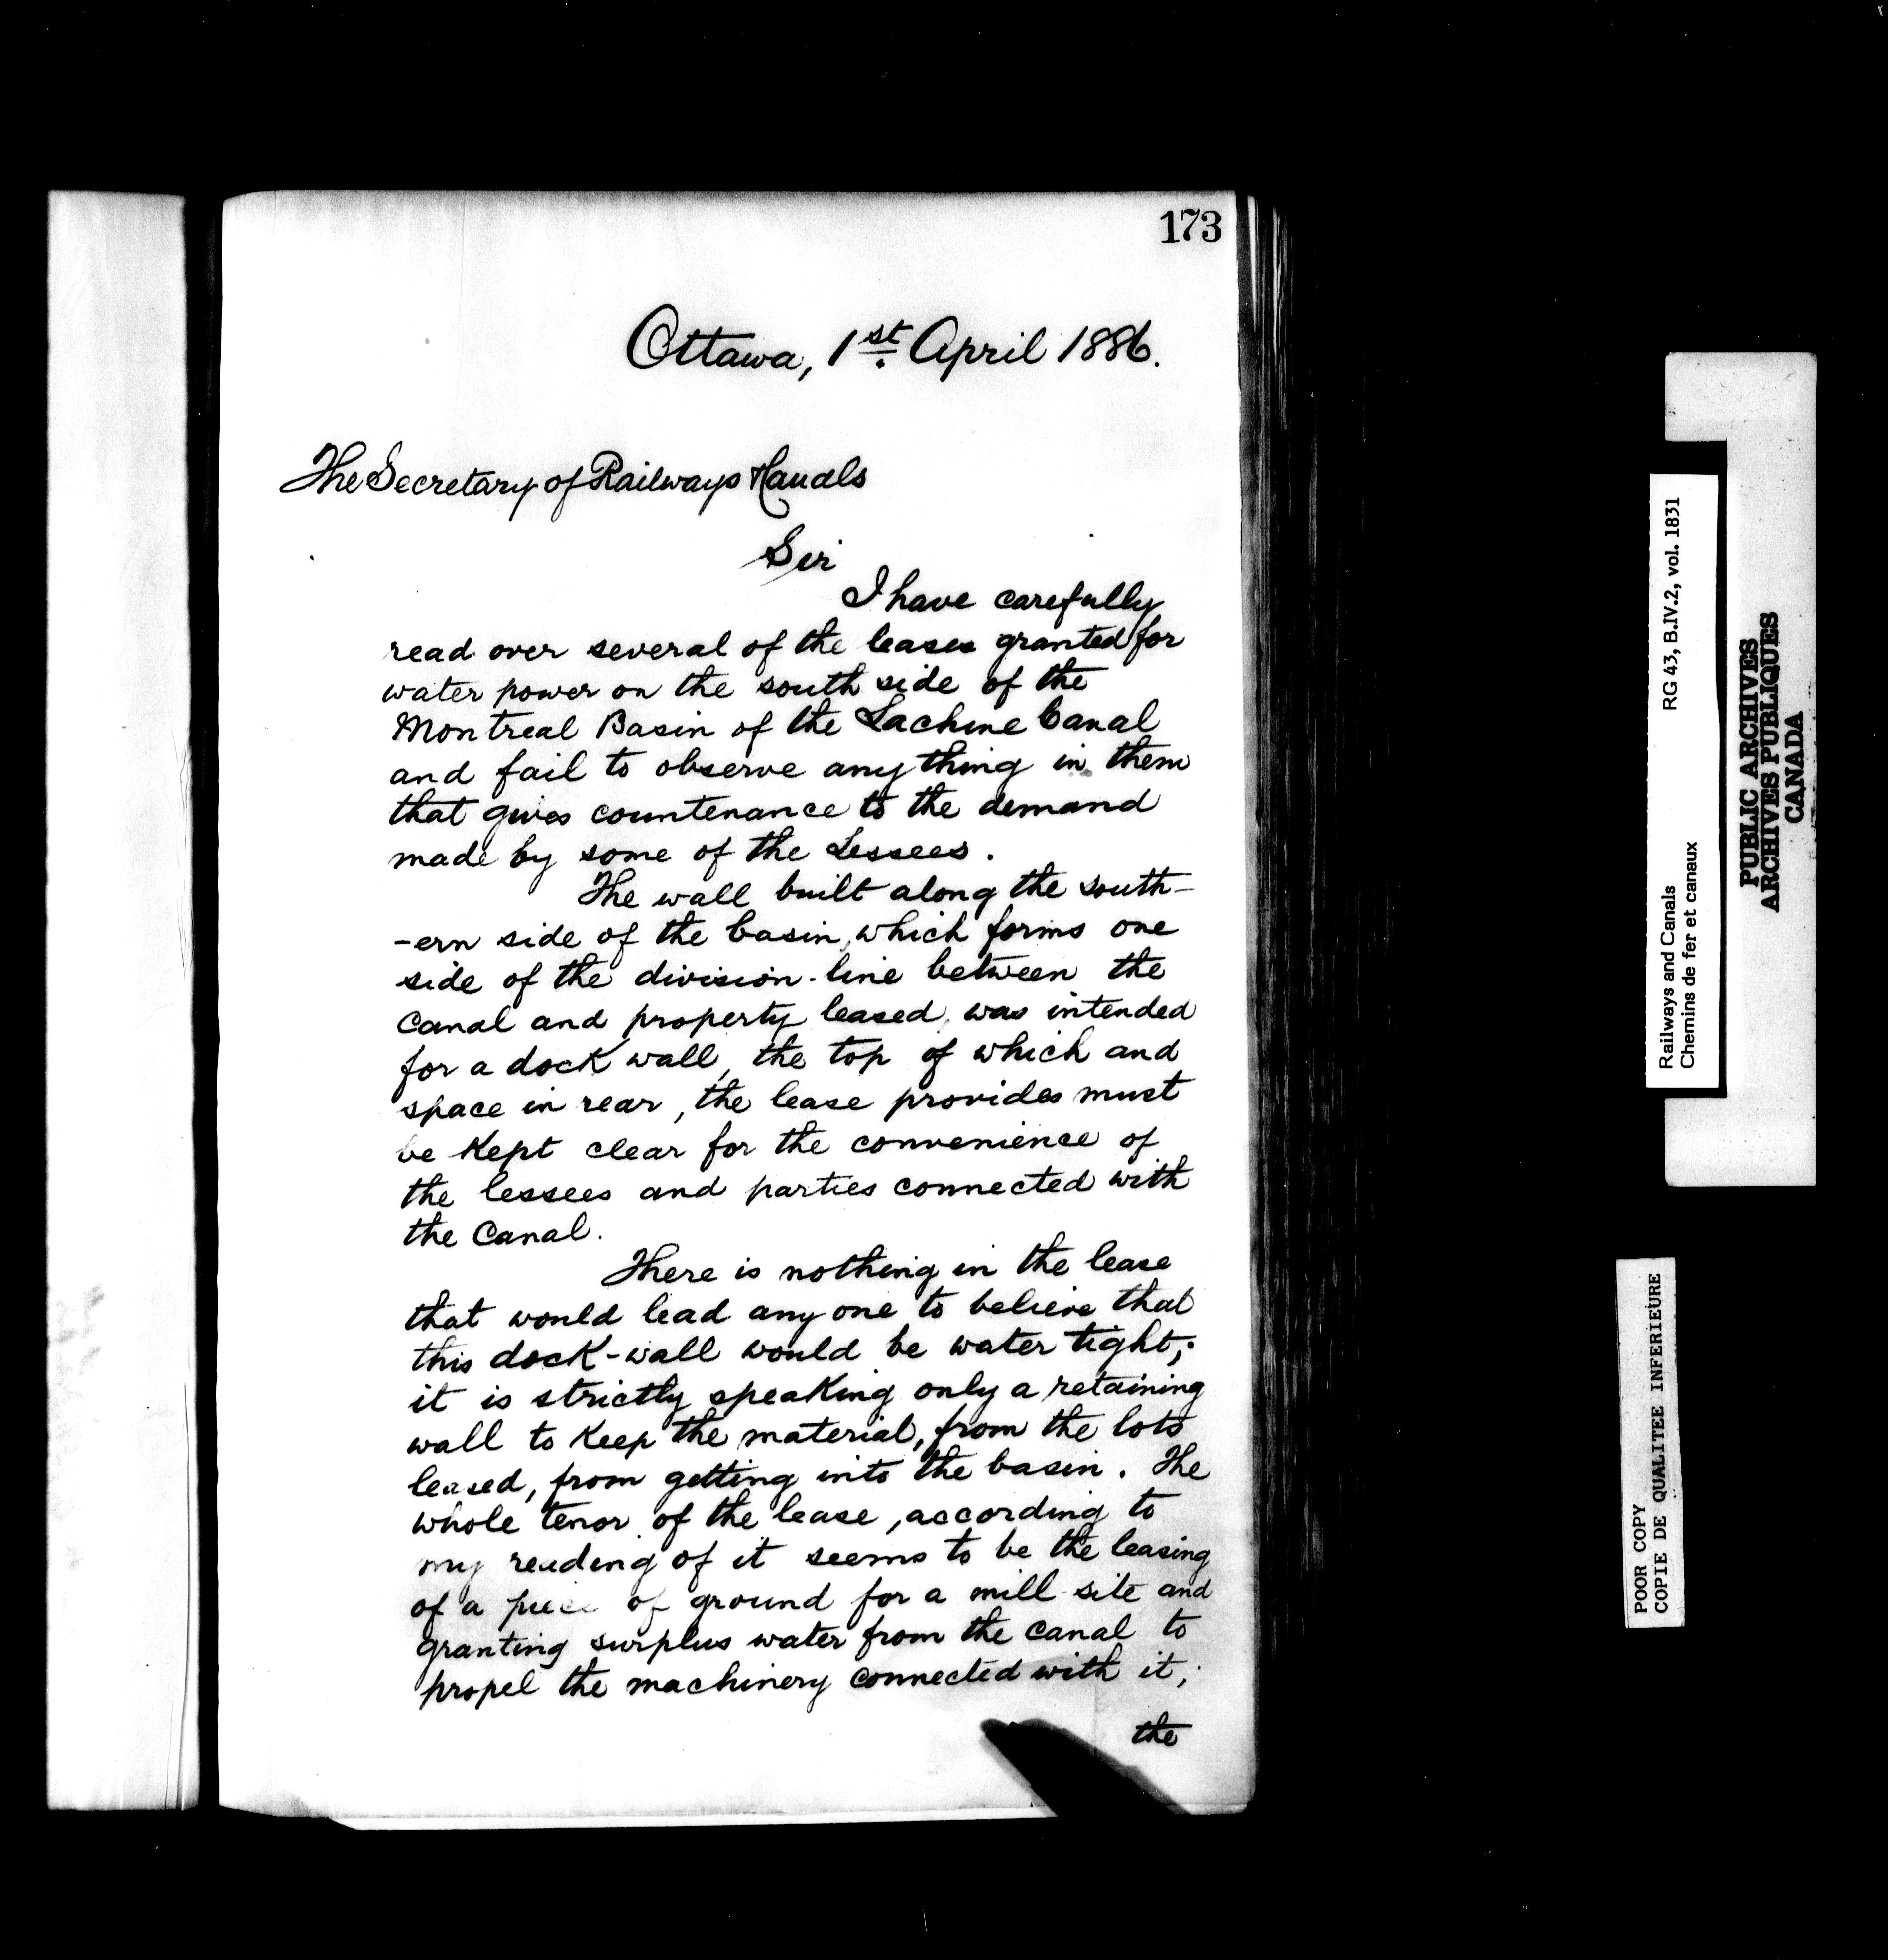 173
Ottawa, 1st April 1886.
The Secretary of Railways & Canals
Sir
I have carefully
read over several of the leases granted for
water power on the south side of the
Montreal Basin of the Lachine Canal
and fail to observe any thing in them
that gives countenance to the demand
made by some of the Lessees.
The wall built along the south-
-ern side of the basin, which forms one
side of the division-line between the
Canal and property leased, was intended
for a dock wall, the top of which and
space in rear, the lease provides must
be kept clear for the convenience of
the lessees and parties connected with
the Canal.
There is nothing in the lease
that would lead any one to believe that
this dock-wall would be water tight;
it is strictly speaking only a retaining
wall to keep the material, from the lots
leased, from getting into the basin. The
whole tenor of the lease, according to
my reading of it seems to be the leasing
of a piece of ground for a mill-site and
granting surplus water from the canal to
propel the machinery connected with it;
the
Railways and Canals RG 43, B.IV.2, vol. 1831
Chemins de fer et canaux
PUBLIC ARCHIVES
ARCHIVES PUBLIQUES
CANADA
POOR COPY
COPIE DE QUALITEE INFERIEURE